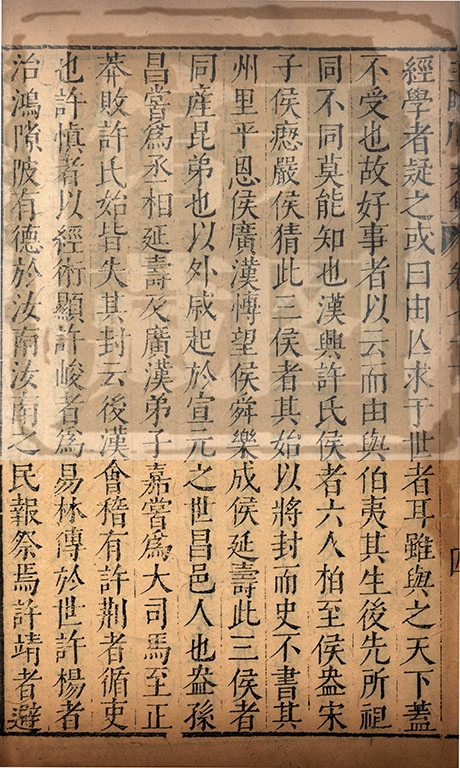 四
經學者疑之或曰由亾求于世者耳雖與之天下蓋
不受也故好事者以云而由與伯夷其生後先所祖
同不同莫能知也漢興許氏侯者六人柏至侯盎宋
子侯瘛嚴侯猜此三侯者其始以將封而史不書其
州里平恩侯廣漢愽望侯舜樂成侯延壽此三侯者
同產昆弟也以外戚起於宣元之世昌邑人也盎孫
昌嘗爲丞相延壽及廣漢弟子嘉嘗爲大司馬至正
莽敗許氏始皆失其封云後漢會稽有許荆者循吏
也許慎者以經術顯許峻者爲易林傳於世許楊者
治鴻隙陂有德於汝南汝南之民報祭焉許靖者避